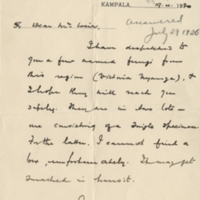 KAMPALA.
answered
July 29 1920
Dear Mrs
I have despatched to
you a few named fungi from
this region (Victoria Nyanza), &
I hope they will reach you
safely. They are in two lots —
one consisting of a single specimen
For the latter, I cannot find a
box, unfortunately. It may get
smashed in transit.